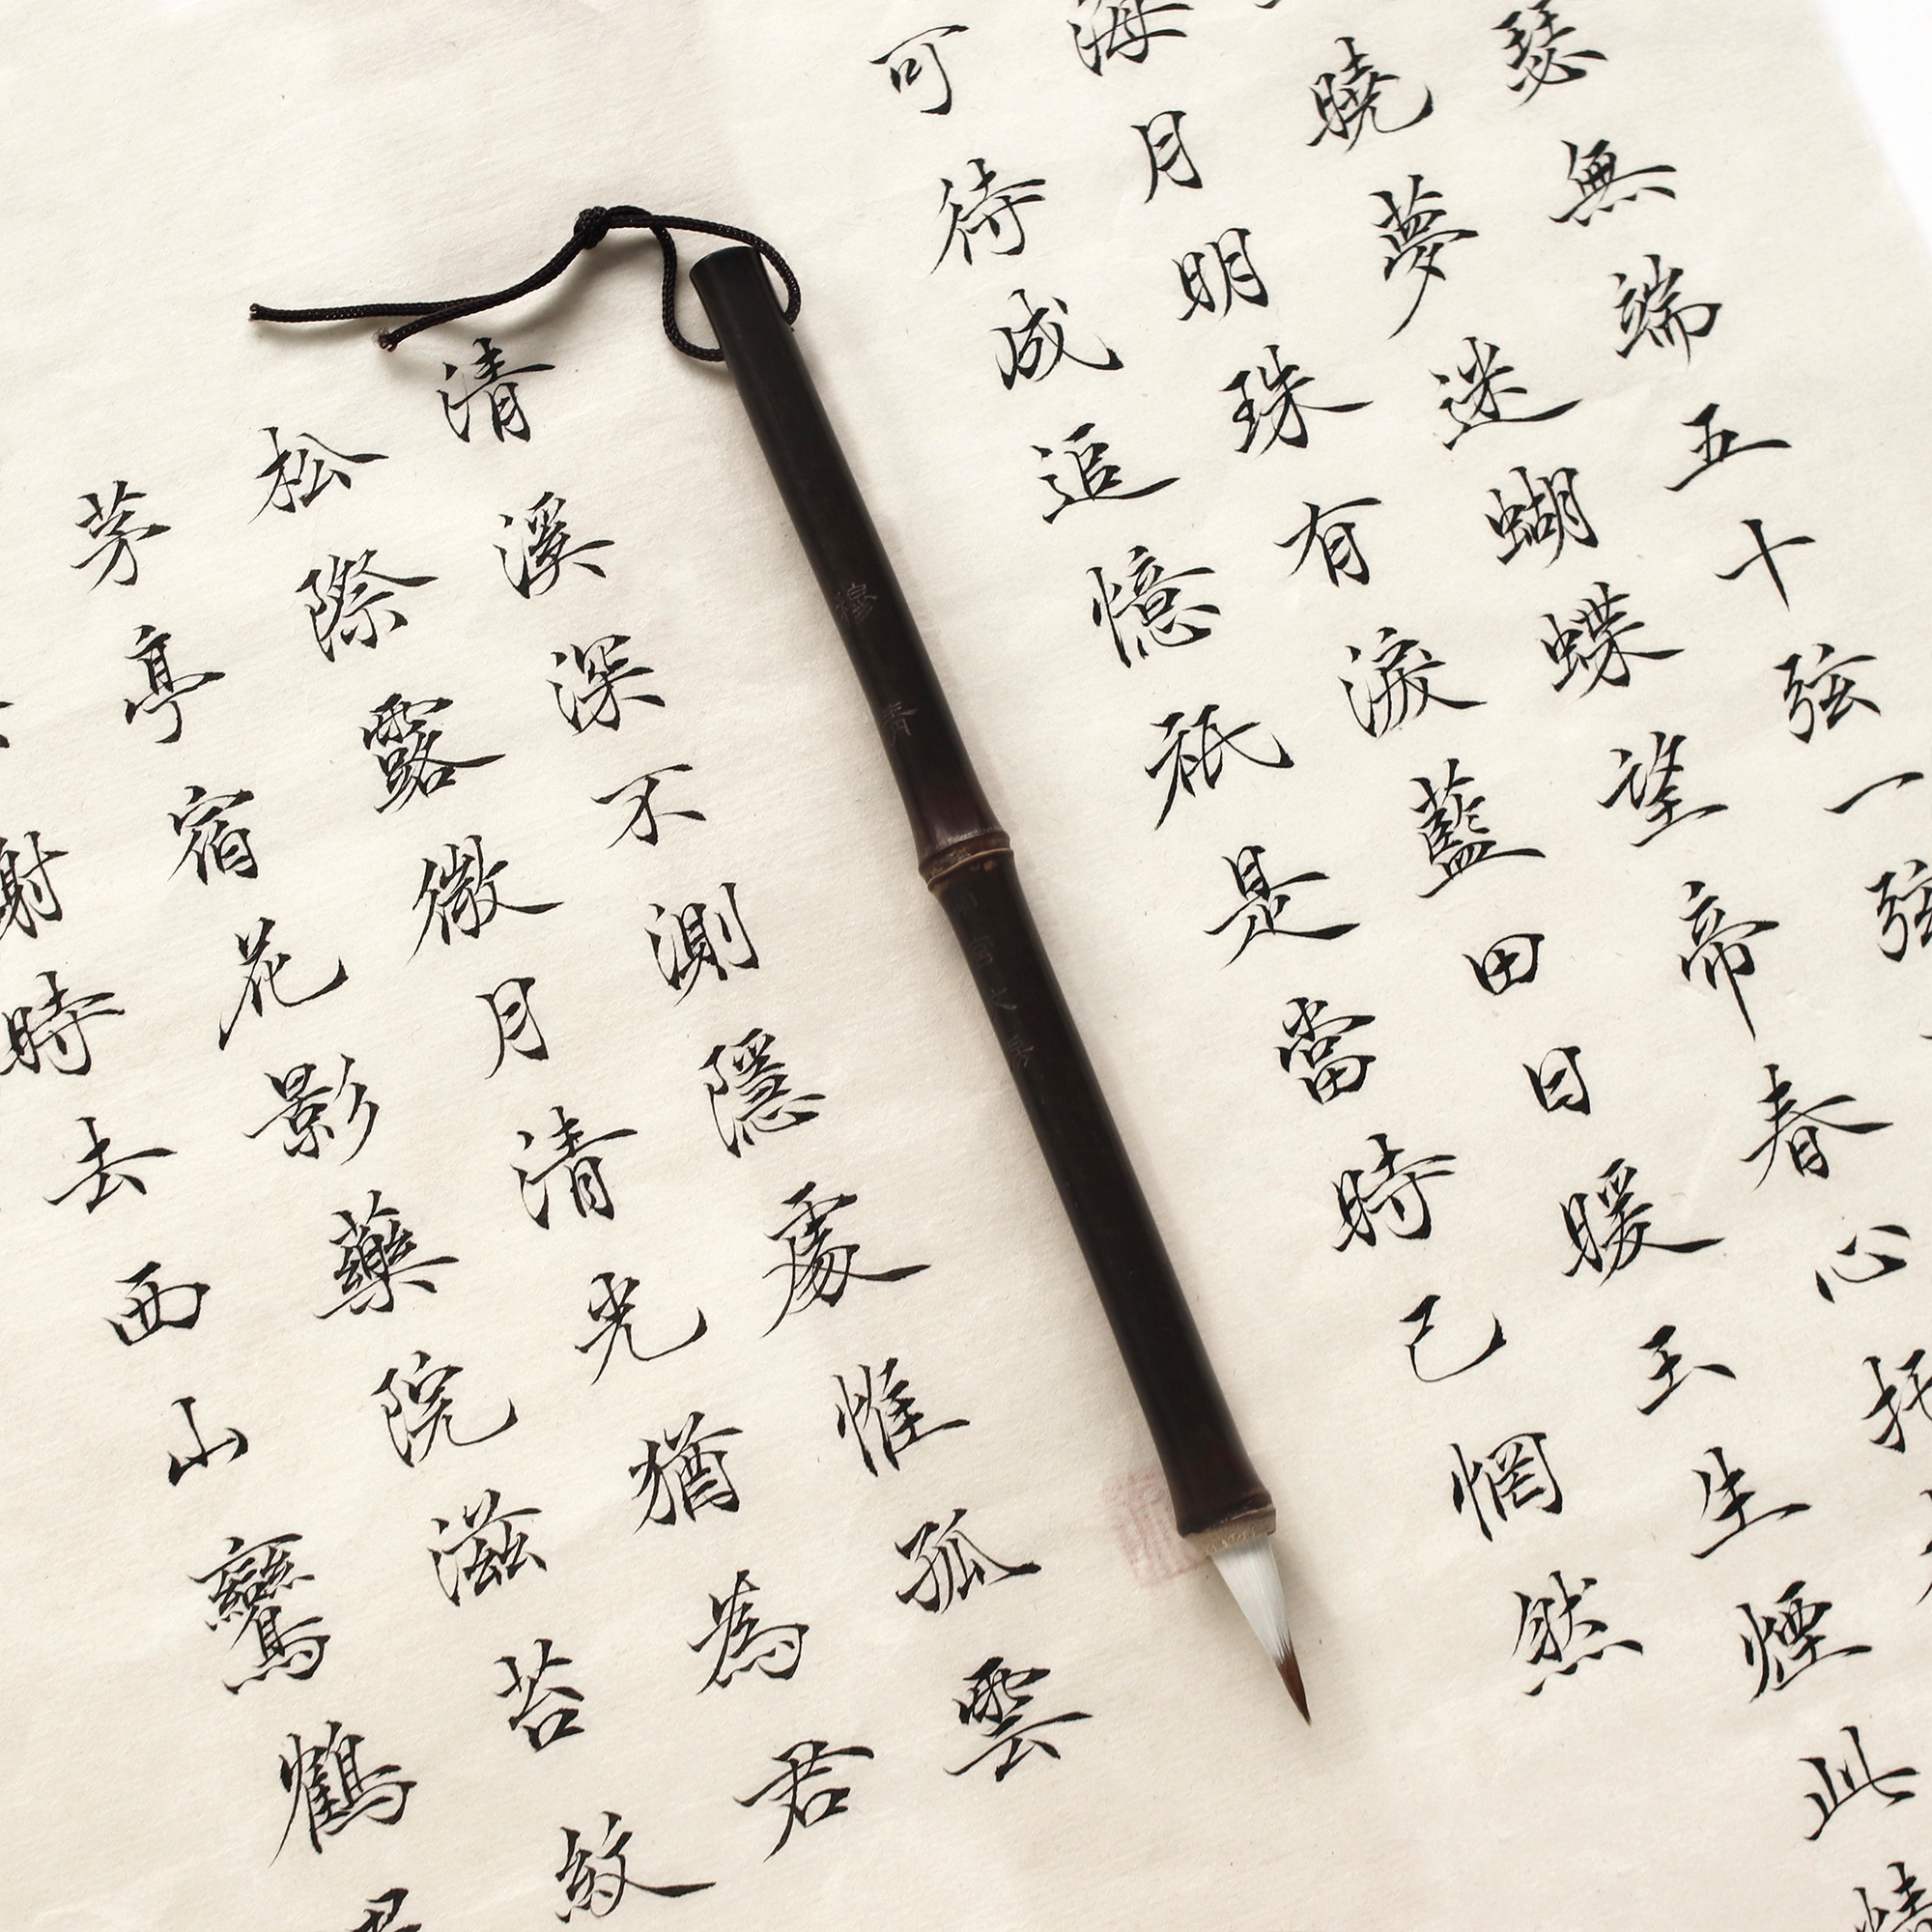 瑟無端五十弦一弦
曉夢迷蝴蝶望帝春心托
海月明珠有淚藍田日暖玉生煙此情
可待成追憶祇是當時已惘然
清溪深不測隱處惟孤雲
松際露微月清光猶為君
茅亭宿花影藥院滋苔紋
時去西山鸞鶴